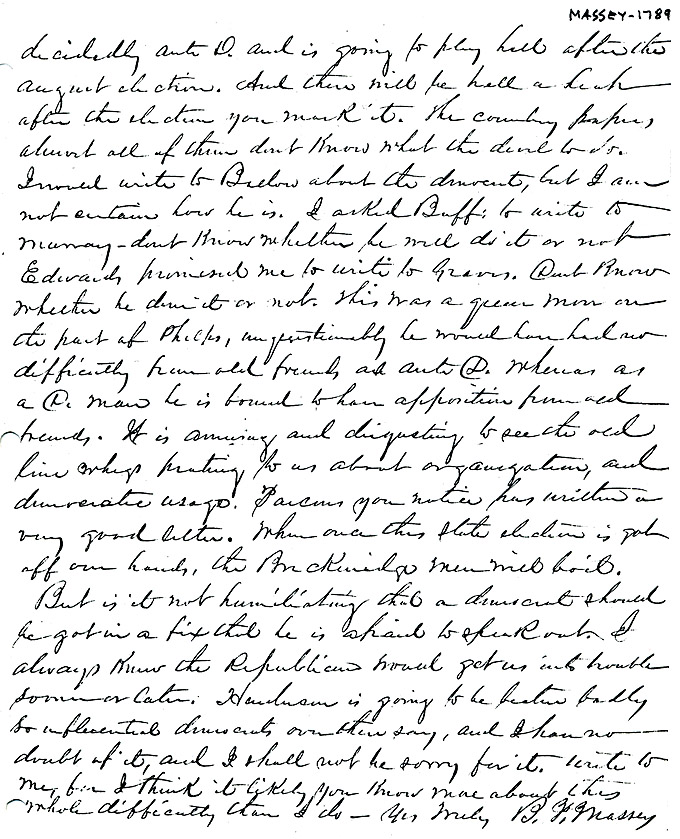 MASSEY-1789
decidedly anti D. and is going to play hell after the
august election. And there will be hell a
after the election you mark it. The country papers
almost all of them dont Know what the devil to do.
I would write to Barlow about the democrats, but I am
not certain how he is. I asked Buff: to write to
Murray - dont Know whether he will do it or not
Edwards promised me to write to Graves. Dont Know
whether he done it or not. This was a queer move on
the part of Phelps, unquestionably he would have had no
difficulty from old friends as anti D. whereas as
a D. man he is bound to have opposition from old
friends. It is amusing and disgusting to see the old
line whigs prating to us about organization, and
democratic usage. Parsons you notice has written a
very good letter. When once this State election is got
off our hands, the Breckinridge men will boil.
But is it not humiliating that a democrat should
be got in a fix that he is afraid to speak out. I
always Knew the Republican would get us into trouble
sooner or later. Henderson is going to be beaten badly
So influential democrats over there say, and I have no
doubt of it, and I shall not be sorry for it. Write to
me, for I think it likely you Know more about this
whole difficulty than I do - Yrs Truly B. F. Massey